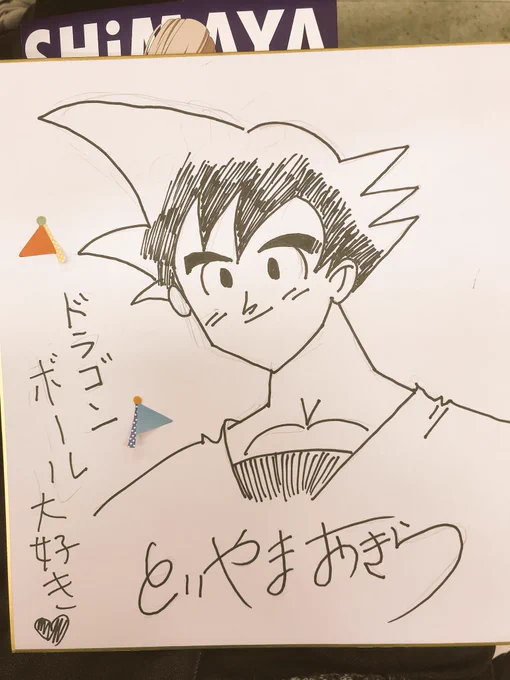 SHiMAYA
ドラゴン
ボール大好き♥
とりやまあきら